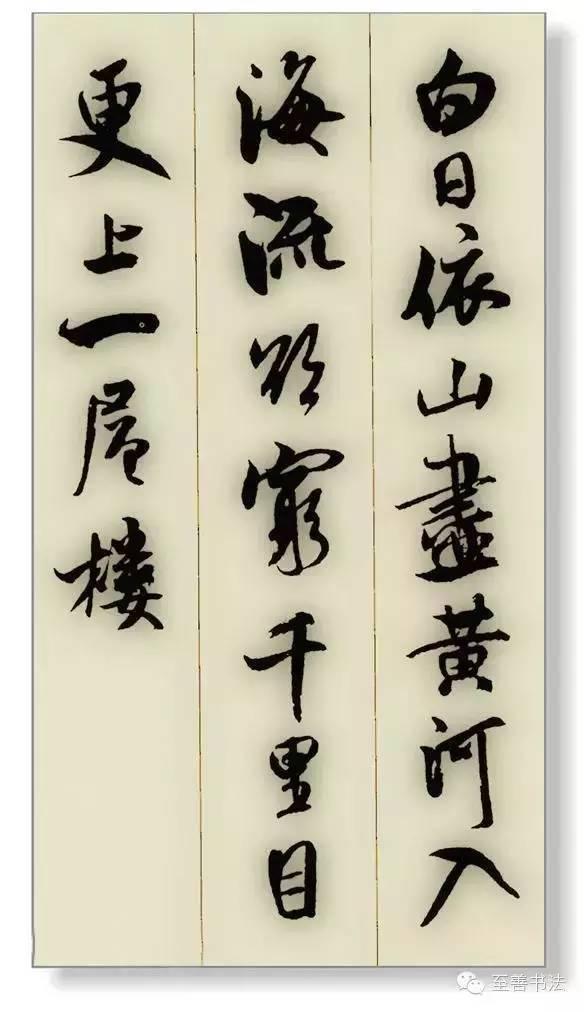 白日依山盡黄河入
海流欲窮千里目
更上一層樓
至善书法